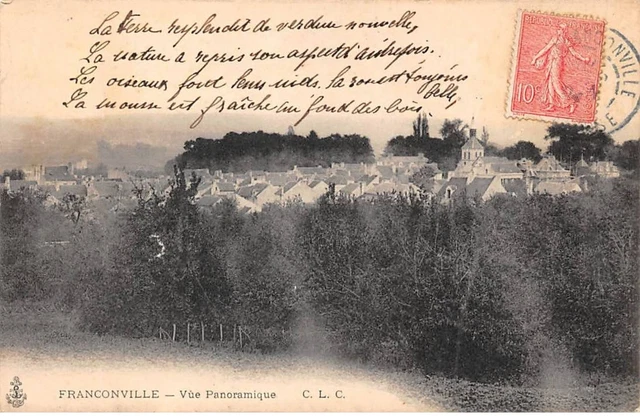 La terre resplendit de verdure nouvelle,
La nature a repris son aspect d'autrefois.
Les oiseaux font leurs nids. la rose est toujours
belle,
La mousse est fraîche au fond des bois
10c
ONVILLE
FRANCONVILLE — Vüe Panoramique C. L. C.